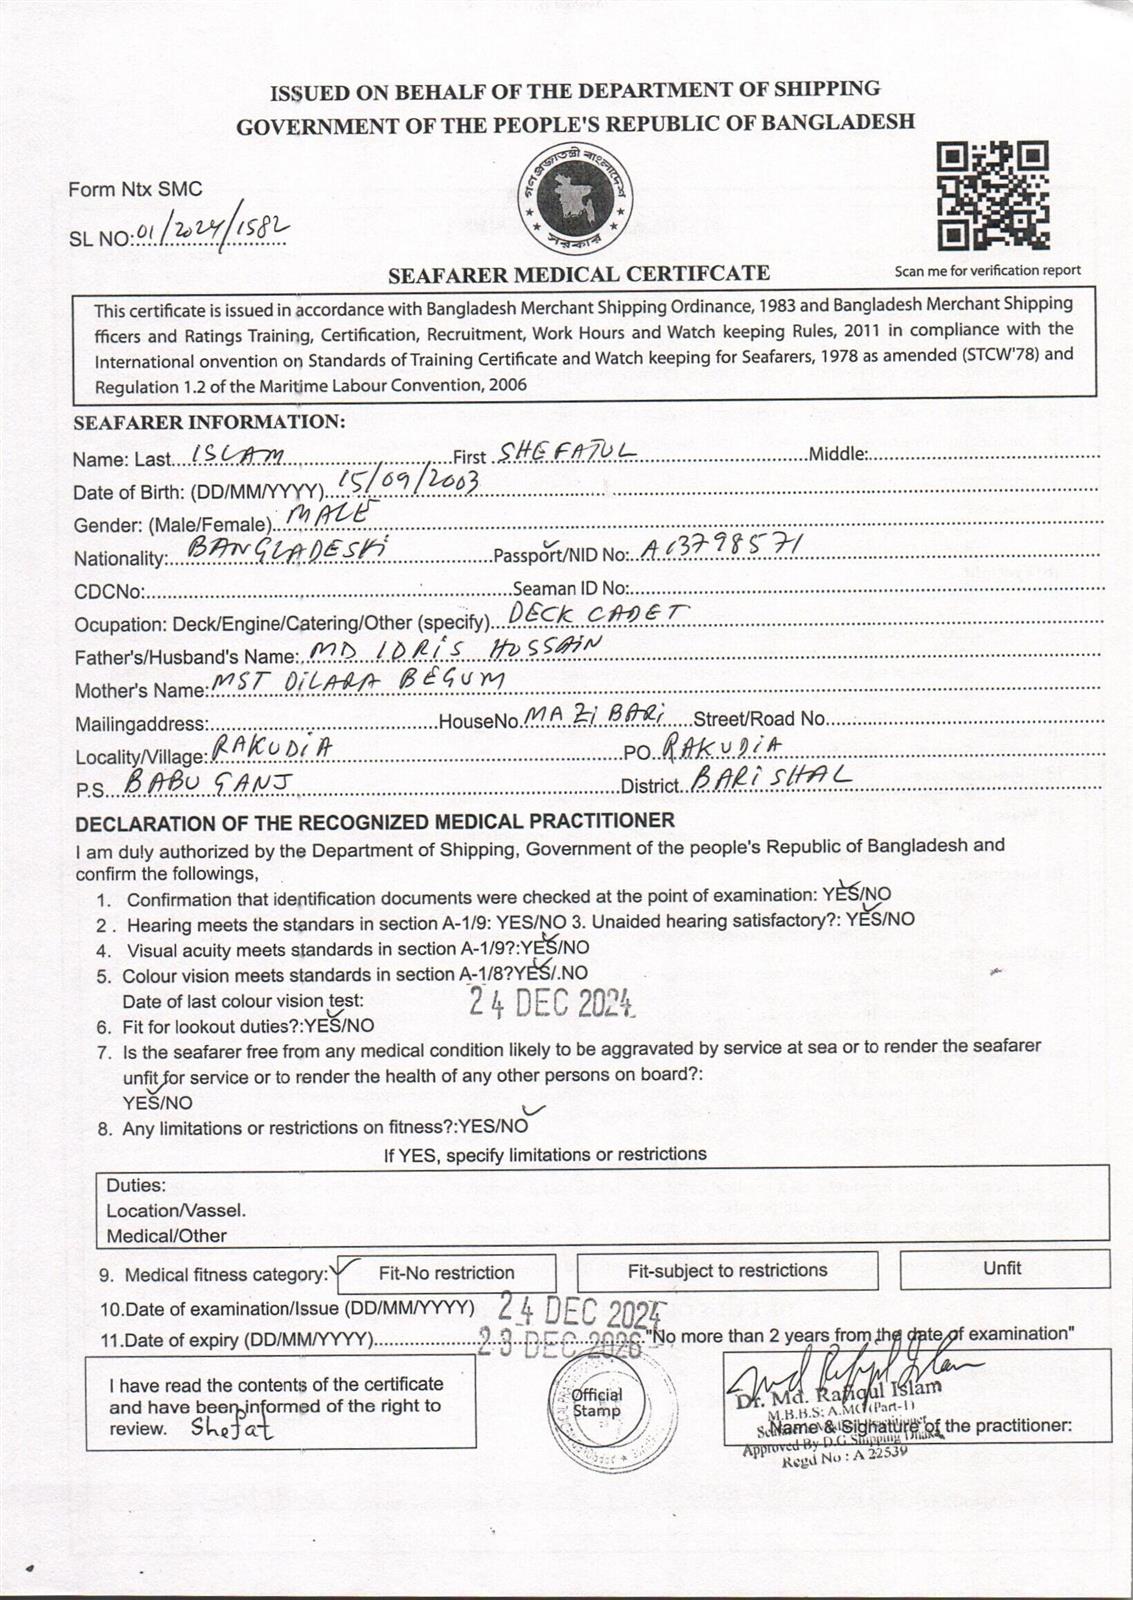 ISSUED ON BEHALF OF THE DEPARTMENT OF SHIPPING
GOVERNMENT OF THE PEOPLE'S REPUBLIC OF BANGLADESH
গণপ্রজাতন্ত্রী বাংলাদেশ
সরকার
Form Ntx SMC
SL NO:01/2024/1582
SEAFARER MEDICAL CERTIFCATE
Scan me for verification report
This certificate is issued in accordance with Bangladesh Merchant Shipping Ordinance, 1983 and Bangladesh Merchant Shipping
fficers and Ratings Training, Certification, Recruitment, Work Hours and Watch keeping Rules, 2011 in compliance with the
International onvention on Standards of Training Certificate and Watch keeping for Seafarers, 1978 as amended (STCW'78) and
Regulation 1.2 of the Maritime Labour Convention, 2006
SEAFARER INFORMATION:
Name: Last ISLAM First SHEFATUL Middle:
Date of Birth: (DD/MM/YYYY) 15/09/2003
Gender: (Male/Female) MALE
Nationality: BANGLADESHi Passport/NID No: A13798571
CDCNo: Seaman ID No:
Ocupation: Deck/Engine/Catering/Other (specify) DECK CADET
Father's/Husband's Name: MD IDRIS HOSSAIN
Mother's Name: MST DILARA BEGUM
Mailingaddress: HouseNo. MAZI BARI Street/Road No.
Locality/Village: RAKUDIA PO. RAKUDIA
P.S. BABUGANJ District. BARISHAL
DECLARATION OF THE RECOGNIZED MEDICAL PRACTITIONER
I am duly authorized by the Department of Shipping, Government of the people's Republic of Bangladesh and
confirm the followings,
1. Confirmation that identification documents were checked at the point of examination: YES/NO
2 . Hearing meets the standars in section A-1/9: YES/NO 3. Unaided hearing satisfactory?: YES/NO
4. Visual acuity meets standards in section A-1/9?:YES/NO
5. Colour vision meets standards in section A-1/8?YES/.NO
Date of last colour vision test: 24 DEC 2024
6. Fit for lookout duties?:YES/NO
7. Is the seafarer free from any medical condition likely to be aggravated by service at sea or to render the seafarer
unfit for service or to render the health of any other persons on board?:
YES/NO
8. Any limitations or restrictions on fitness?:YES/NO
If YES, specify limitations or restrictions
Duties:
Location/Vassel.
Medical/Other
9. Medical fitness category: Fit-No restriction Fit-subject to restrictions Unfit
10.Date of examination/Issue (DD/MM/YYYY) 24 DEC 2024
11.Date of expiry (DD/MM/YYYY) 23 DEC 2026 "No more than 2 years from the date of examination"
I have read the contents of the certificate
and have been informed of the right to
review. Shefat
Official
Stamp
Md Rafiqul Islam
Dr. Md. Rafiqul Islam
M.B.B.S: A.MC (Part-1)
Name & Signature of the practitioner:
Approved By D.G. Shipping Dhaka
Regd No : A 22539